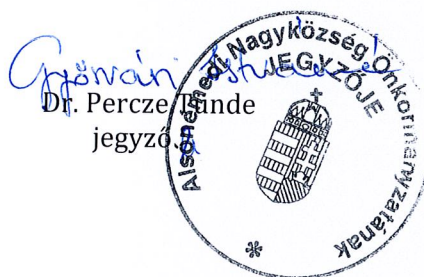 Győrvári Istvánné
Dr. Percze Tünde
jegyző
Alsónémedi Nagyközség Önkormányzatának
JEGYZŐJE